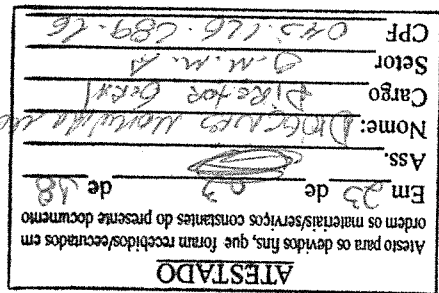 ATESTADO
Atesto para os devidos fins, que foram recebidos/executados em
ordem os materiais/serviços constantes do presente documento
Em 23 de 03 de 18
Ass.
Nome: Diogenes
Cargo Diretor Geral
Setor
CPF 043.126.689-16